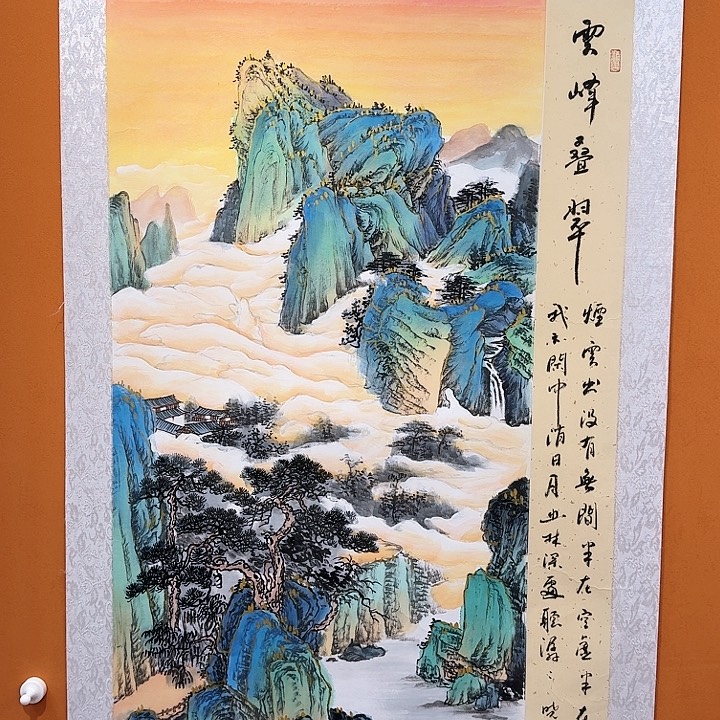 雲峰叠翠
煙雲出没有無間半在空虛半在
我亦閑中消日月幽林深處聽潺々